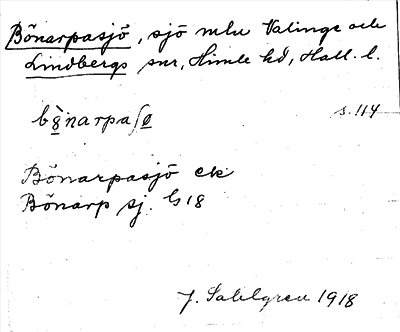 Bönarpasjö, sjö mlu Valinge och
Lindbergs snr, Himle hd, Hall. l.
s. 114
Bönarpasjö ek
Bönarp sj. G 18
J. Sahlgren 1918